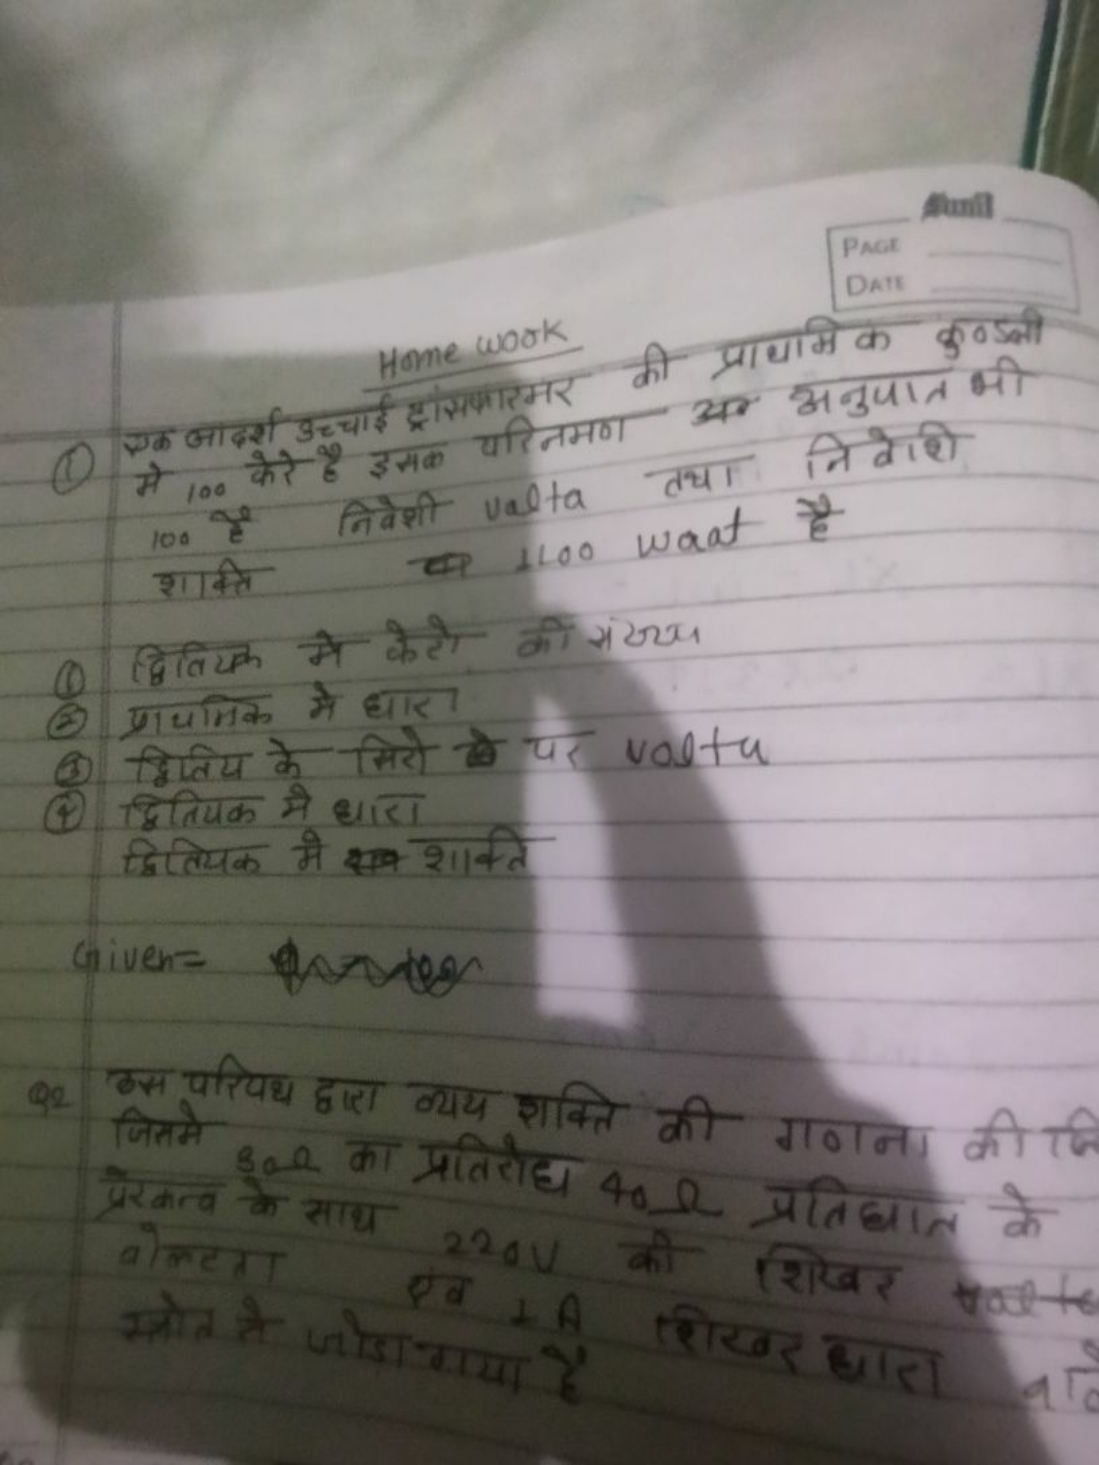 Sunil
PAGE
DATE
Home wook
① एक आदर्श उच्चाई ट्रांसफारमर की प्राथमिक कुण्डली
मे 100 फेरे है इसक परिनमण अनुपात भी
100 है निवेशी valta तथा निवेशि
शक्ति 1100 waat है
① द्वितियक मे फेरो की संख्या
② प्राथमिक मे धारा
③ द्वितिय के सिरो पर voltu
④ द्वितियक मे धारा
द्वितियक मे शक्ति
Given=
Q2 उस परिपथ द्वारा व्यय शक्ति की गणना की
जिसमे 30Ω का प्रतिरोध 40Ω प्रतिघात के
प्रेरकत्व के साथ 220V की शिखर
वोल्टता एवं 1A शिखर धारा
स्त्रोत से जोडा गया है